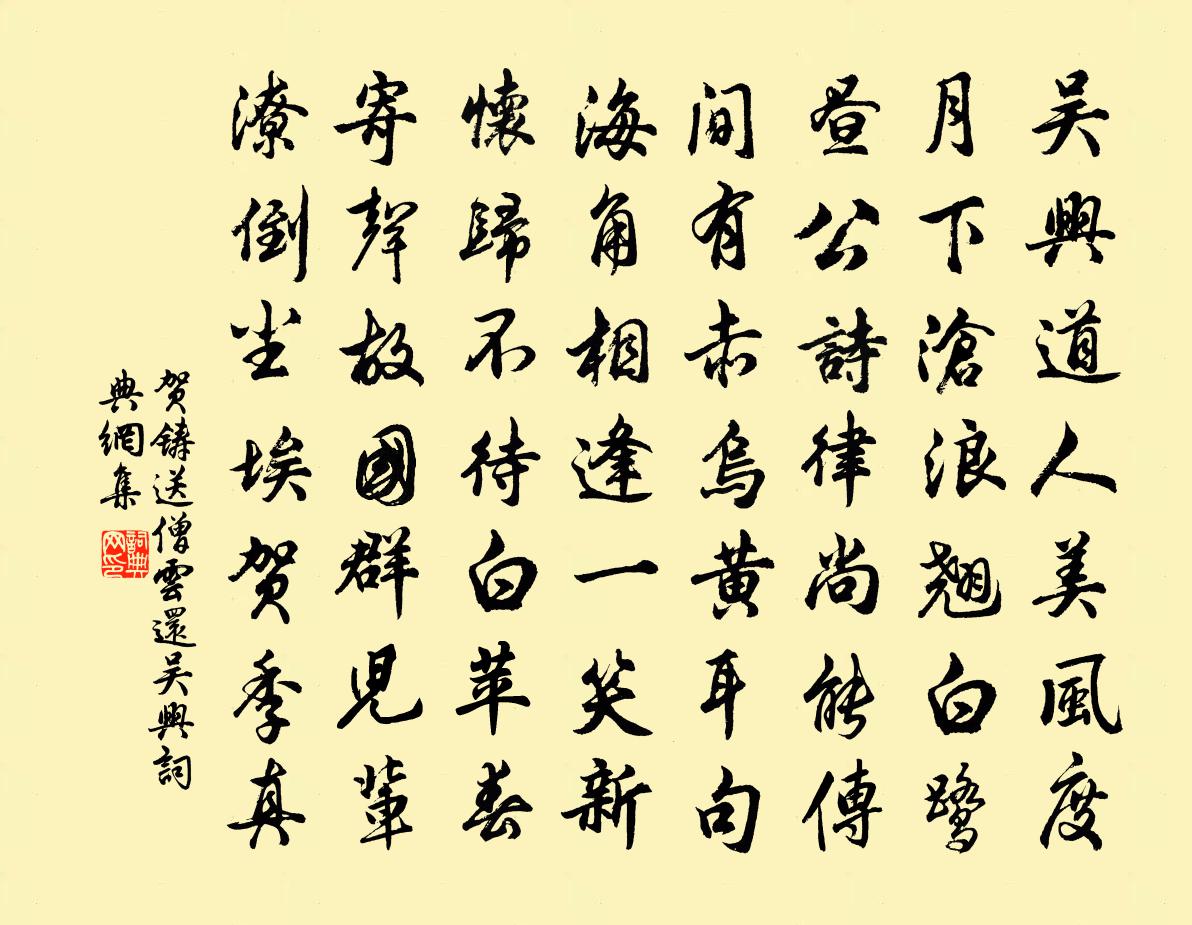 吴興道人美風度
月下滄浪翹白鷺
晝公詩律尚能傳
间有赤烏黄耳句
海角相逢一笑新
懷歸不待白苹春
寄聲故國群児輩
潦倒尘埃贺季真
贺鑄送僧雲還吴興詞
典網集
詞典
网印